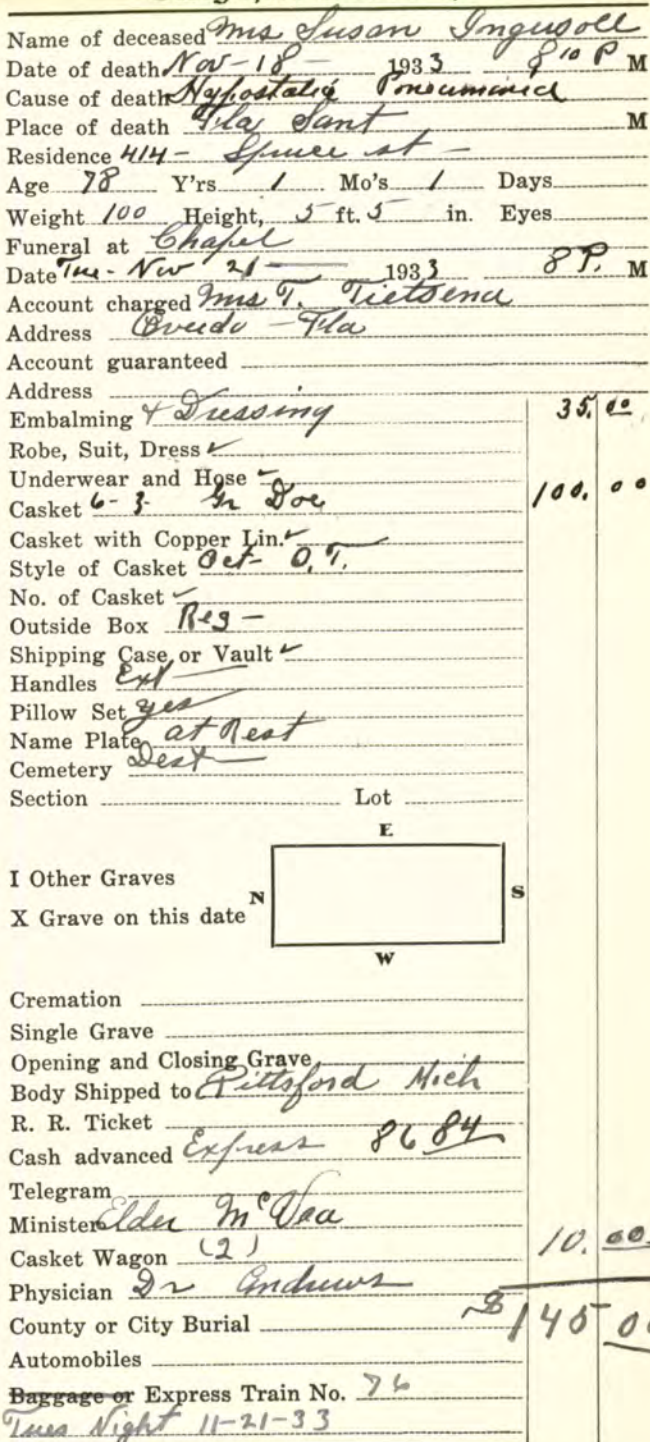 Name of deceased Mrs Susan Ingersoll
Date of death Nov-18- 1933 8 10 P M
Cause of death Hypostatic Pneumonia
Place of death Fla Sant M
Residence 414- Spruce st -
Age 78 Y'rs 1 Mo's 1 Days
Weight 100 Height, 5 ft. 5 in. Eyes
Funeral at Chapel
Date Tue- Nov 21 1933 8 P. M
Account charged Mrs T.
Address Oveido - Fla
Account guaranteed
Address
Embalming & Dressing 35. 00
Robe, Suit, Dress ✓
Underwear and Hose ✓
Casket 6-3 Gr Doe 100. 00
Casket with Copper Lin. ✓
Style of Casket Oct- O.T.
No. of Casket ✓
Outside Box Reg -
Shipping Case or Vault ✓
Handles Ext
Pillow Set yes
Name Plate at Rest
Cemetery Dest
Section Lot
E
I Other Graves
N S
X Grave on this date
W
Cremation
Single Grave
Opening and Closing Grave
Body Shipped to Pittsford Mich
R. R. Ticket
Cash advanced Express 86 84
Telegram
Minister Elder McVea
Casket Wagon (2) 10. 00
Physician Dr Andrews
County or City Burial $145 00
Automobiles
Baggage or Express Train No. 76
Tues Night 11-21-33